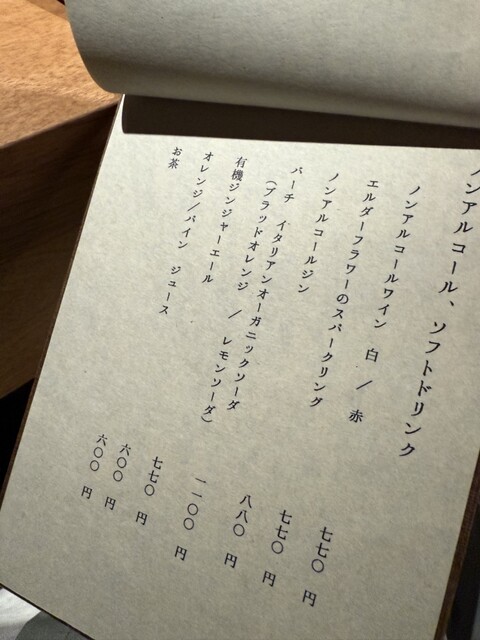 ノンアルコール、ソフトドリンク
ノンアルコールワイン 白 / 赤 七七〇 円
エルダーフラワーのスパークリング 七七〇 円
ノンアルコールジン 八八〇 円
バーチ イタリアンオーガニックソーダ 一一〇〇 円
(ブラッドオレンジ / レモンソーダ)
有機ジンジャーエール 七七〇 円
オレンジ/パイン ジュース 六〇〇 円
お茶 六〇〇 円